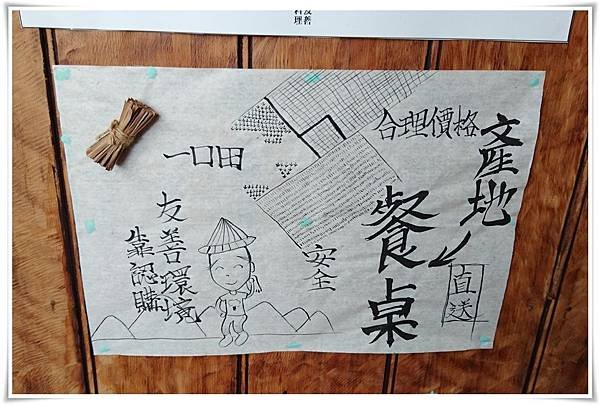 產地
直送
餐桌
合理價格
安全
一口田
友善環境
靠認購